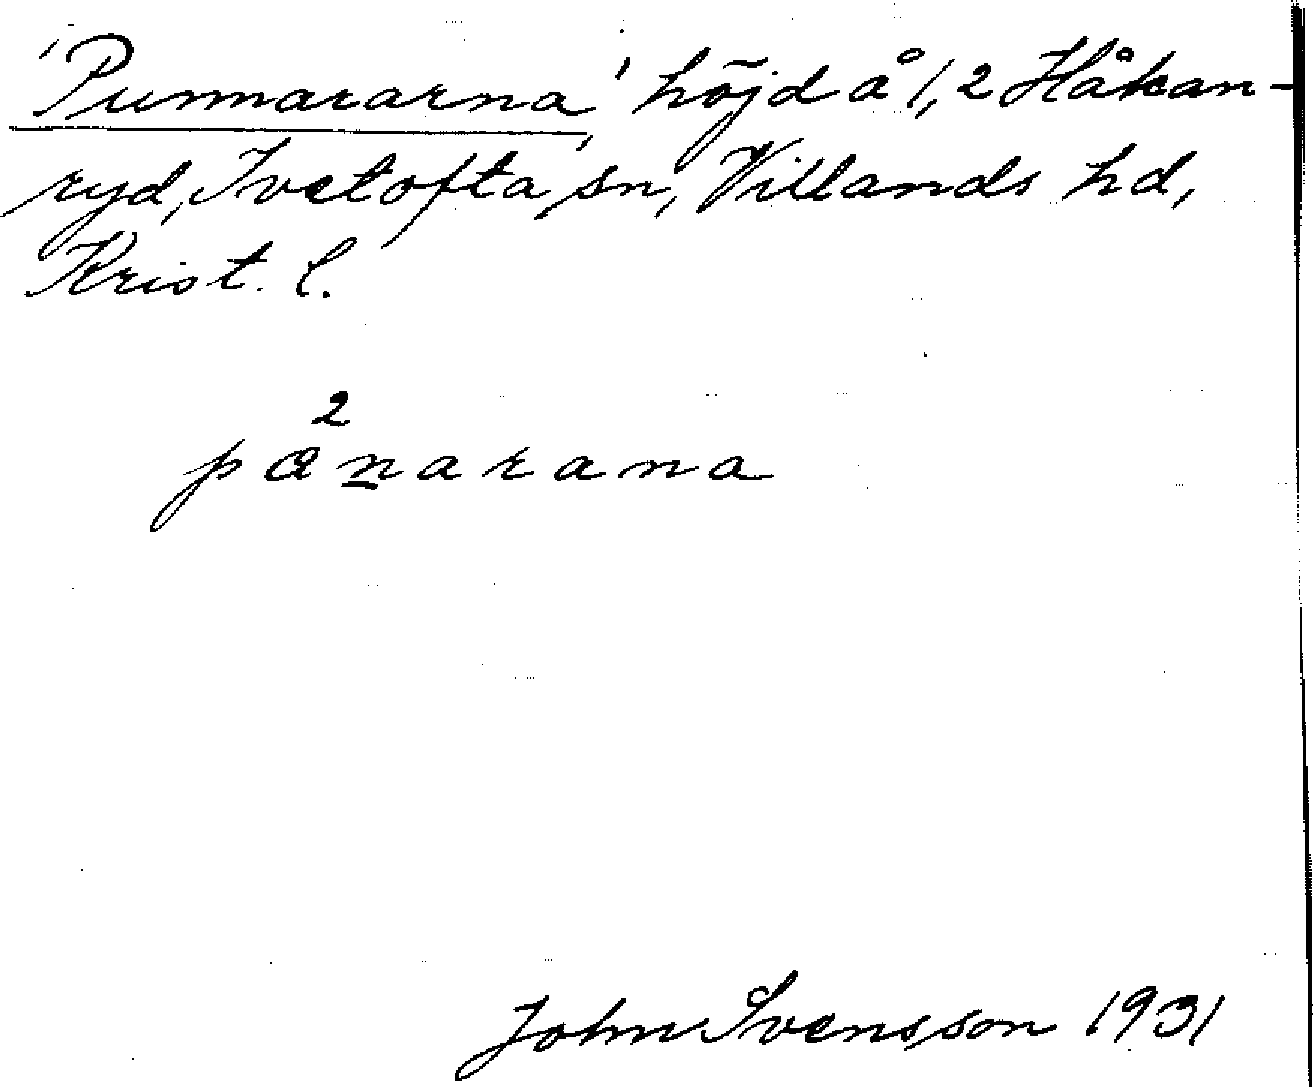 'Punnararna', höjd å 1,2 Håkan-
ryd, Ivetofta sn, Villands hd,
Krist. l.
2
pånarana
John Svensson 1931